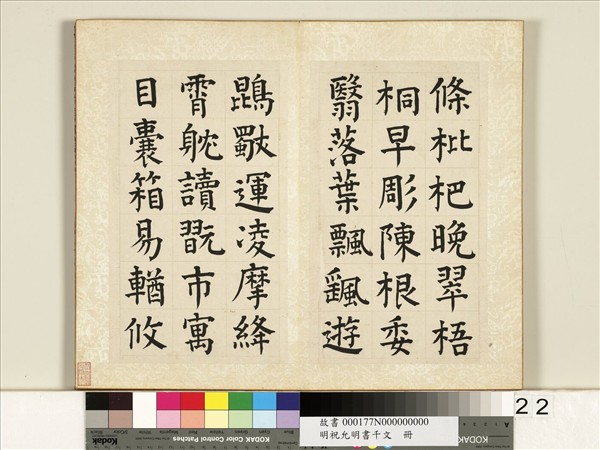 條枇杷晚翠梧
桐早彫陳根委
翳落葉飄颻遊
鵾運凌摩絳
霄躭讀翫市寓
目囊箱易輶攸
22
故書 000177N000000000
明祝允明書千文 冊
Kodak
KODAK Color Control Patches
KODAK